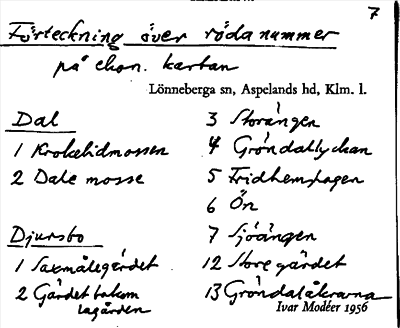 7
Förteckning över röda nummer
på ekon. kartan
Lönneberga sn, Aspelands hd, Klm. l.
Dal
1 Krokelidmossen
2 Dale mosse
Djursbo
1 Saxmålegärdet
2 Gärdet bakom
lagården
3 Storängen
4 Gröndallyckan
5 Fridhemshagen
6 Ön
7 Sjöängen
12 Store gärdet
13 Gröndalsåkrarna
Ivar Modéer 1956